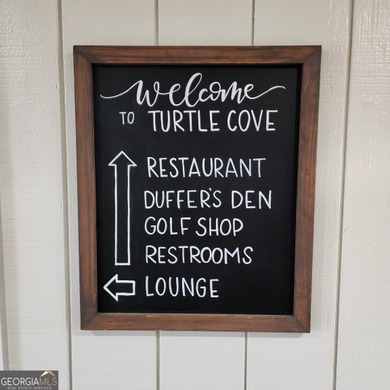 Welcome
TO TURTLE COVE
RESTAURANT
DUFFER'S DEN
GOLF SHOP
RESTROOMS
LOUNGE
GEORGIAMLS
REAL ESTATE SERVICES